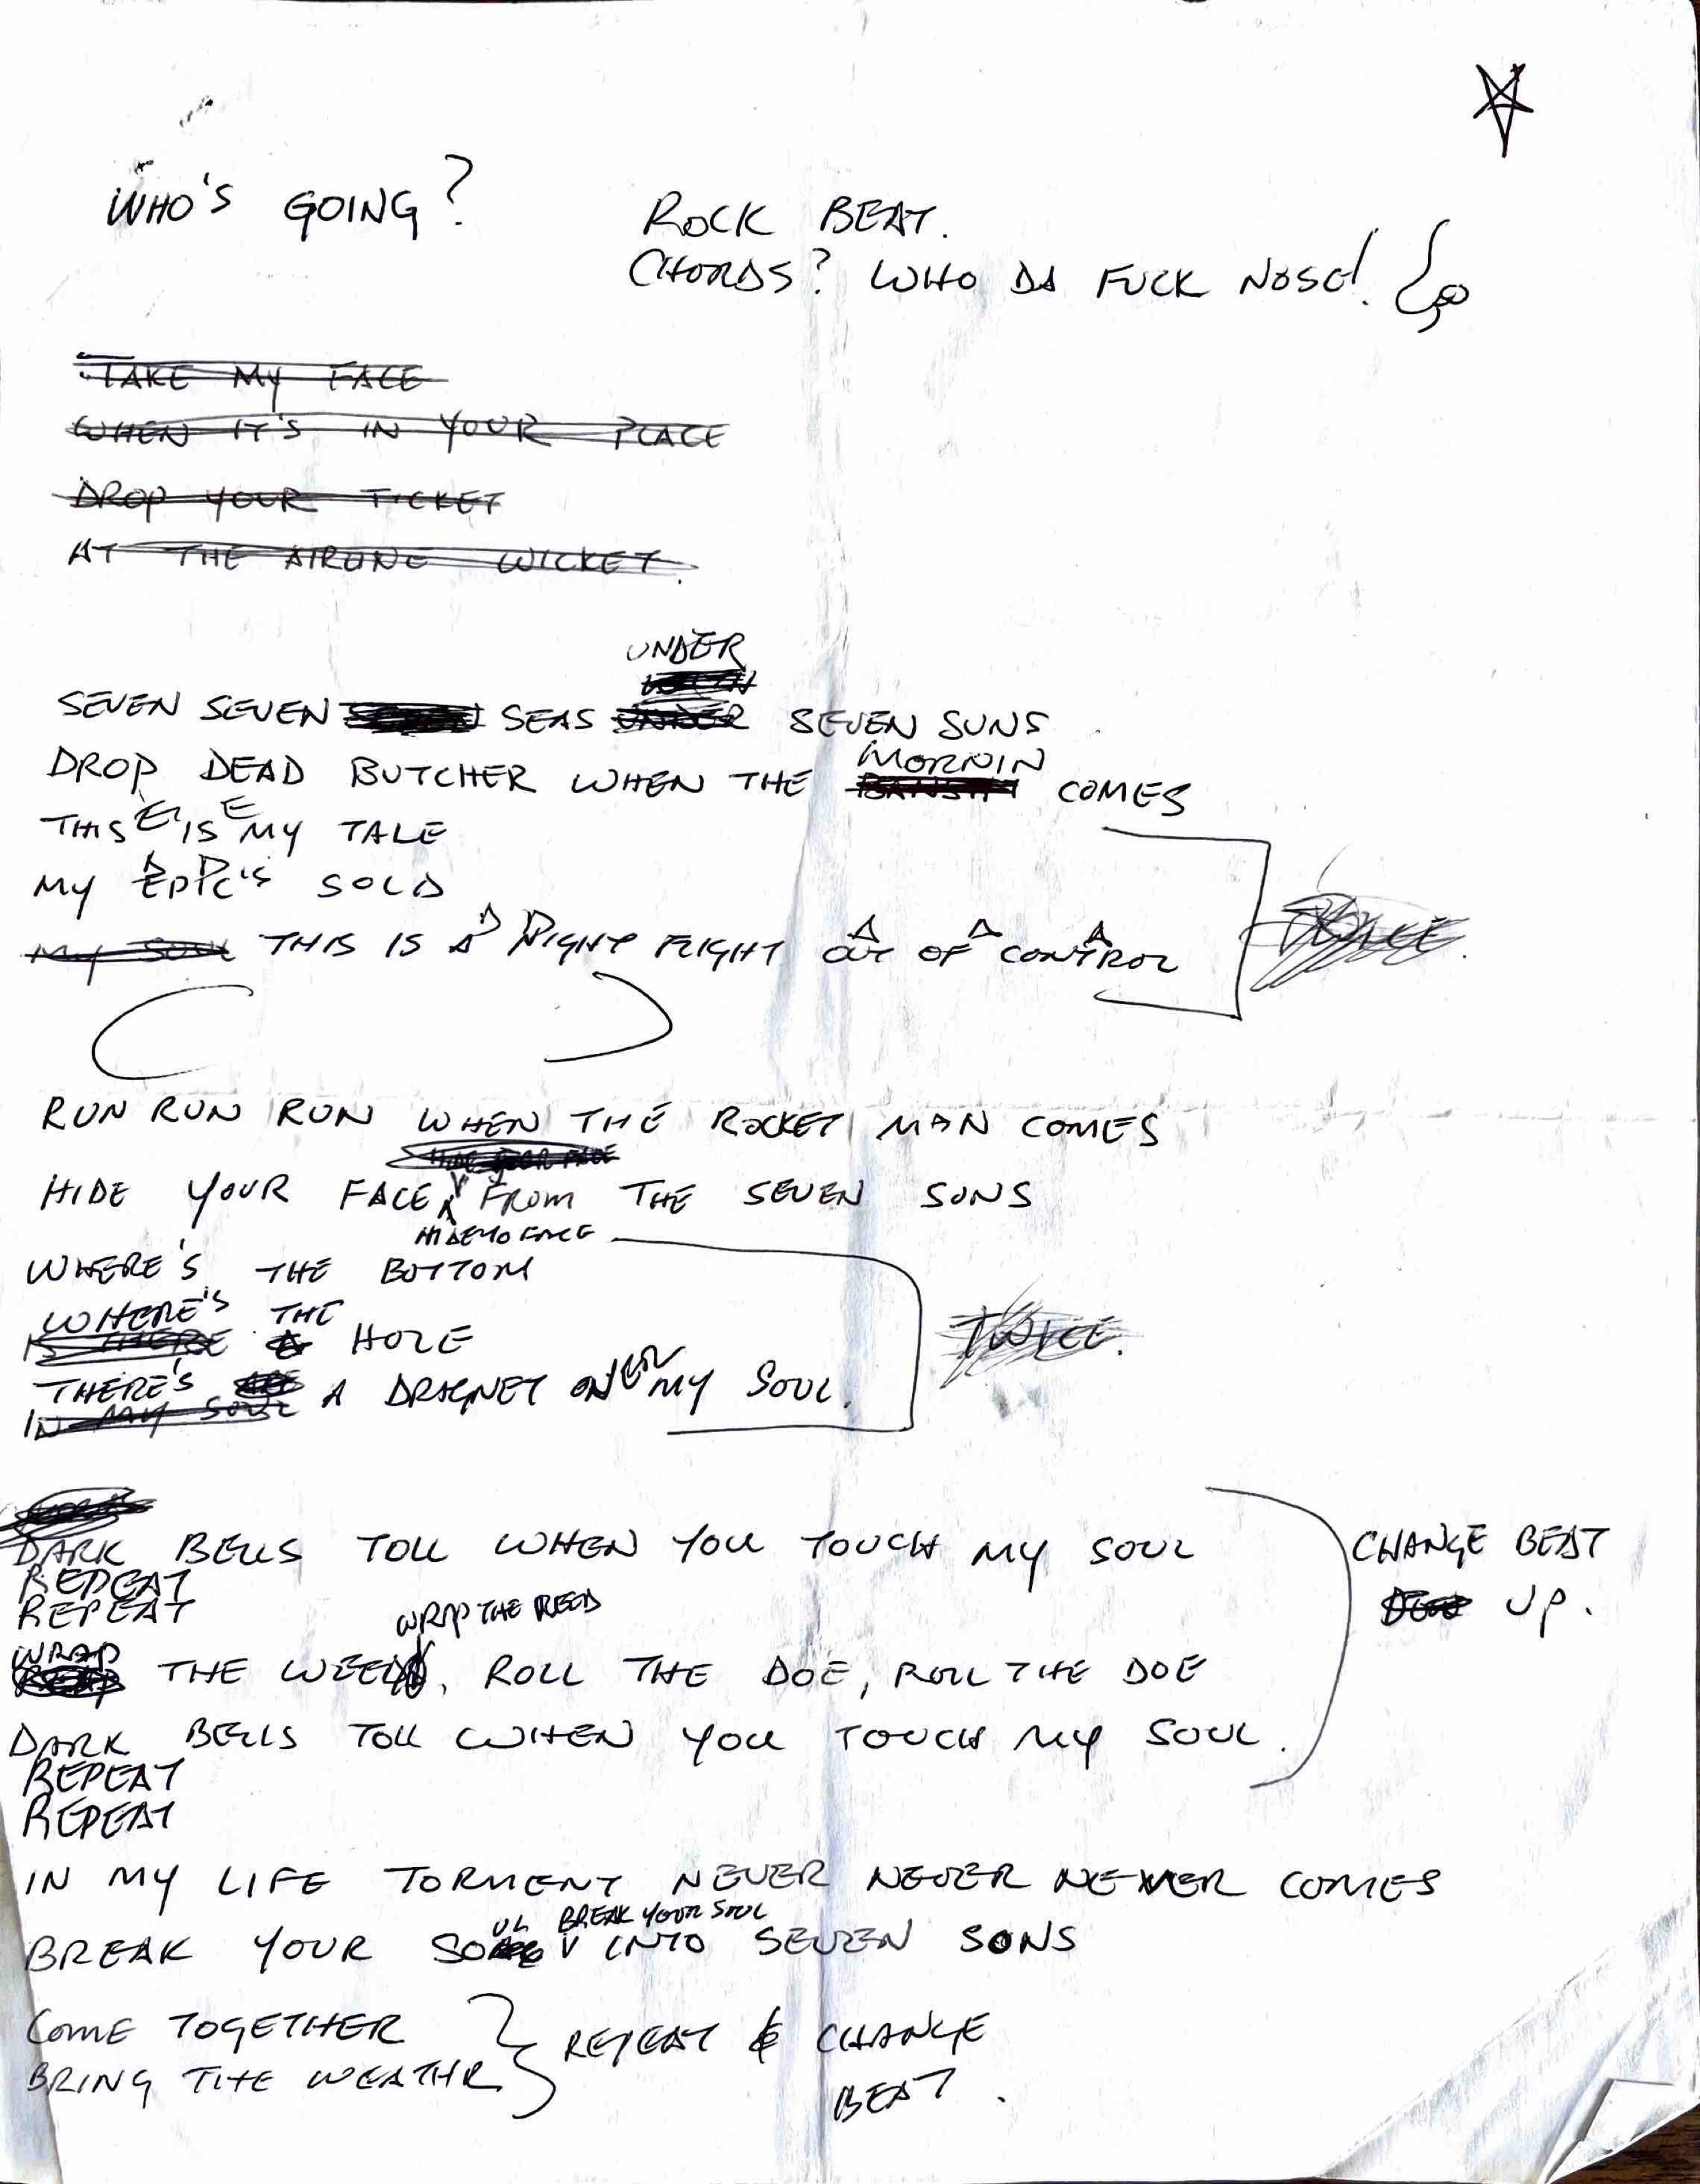 WHO'S GOING?
ROCK BEAT.
CHORDS? WHO DA FUCK NOSE!
TAKE MY FACE
WHEN IT'S IN YOUR PLACE
DROP YOUR TICKET
AT THE AIRLINE WICKET.
UNDER
SEVEN SEVEN SEAS UNDER SEVEN SUNS
MORNIN
DROP DEAD BUTCHER WHEN THE COMES
THIS IS MY TALE
MY EPIC'S SOLD
MY SOUL THIS IS A NIGHT FLIGHT OUT OF CONTROL
RUN RUN RUN WHEN THE ROCKET MAN COMES
HIDE YOUR FACE
HIDE YOUR FACE FROM THE SEVEN SONS
HIDE YO FACE
WHERE'S THE BOTTOM
WHERE'S THE
IS THERE A HOLE
TWICE.
THERE'S A DRAGNET ON MY SOUL.
IN MY SOUL
DARK BELLS TOLL WHEN YOU TOUCH MY SOUL
REPEAT
REPEAT
CHANGE BEAT
UP.
WRAP THE REED
WRAP
THE WEED, ROLL THE DOE, ROLL THE DOE
DARK BELLS TOLL WHEN YOU TOUCH MY SOUL.
REPEAT
REPEAT
IN MY LIFE TORMENT NEVER NEVER NEVER COMES
UL BREAK YOUR SOUL
BREAK YOUR SO INTO SEVEN SONS
COME TOGETHER
BRING THE WEATHR
REPEAT & CHANGE
BEAT.